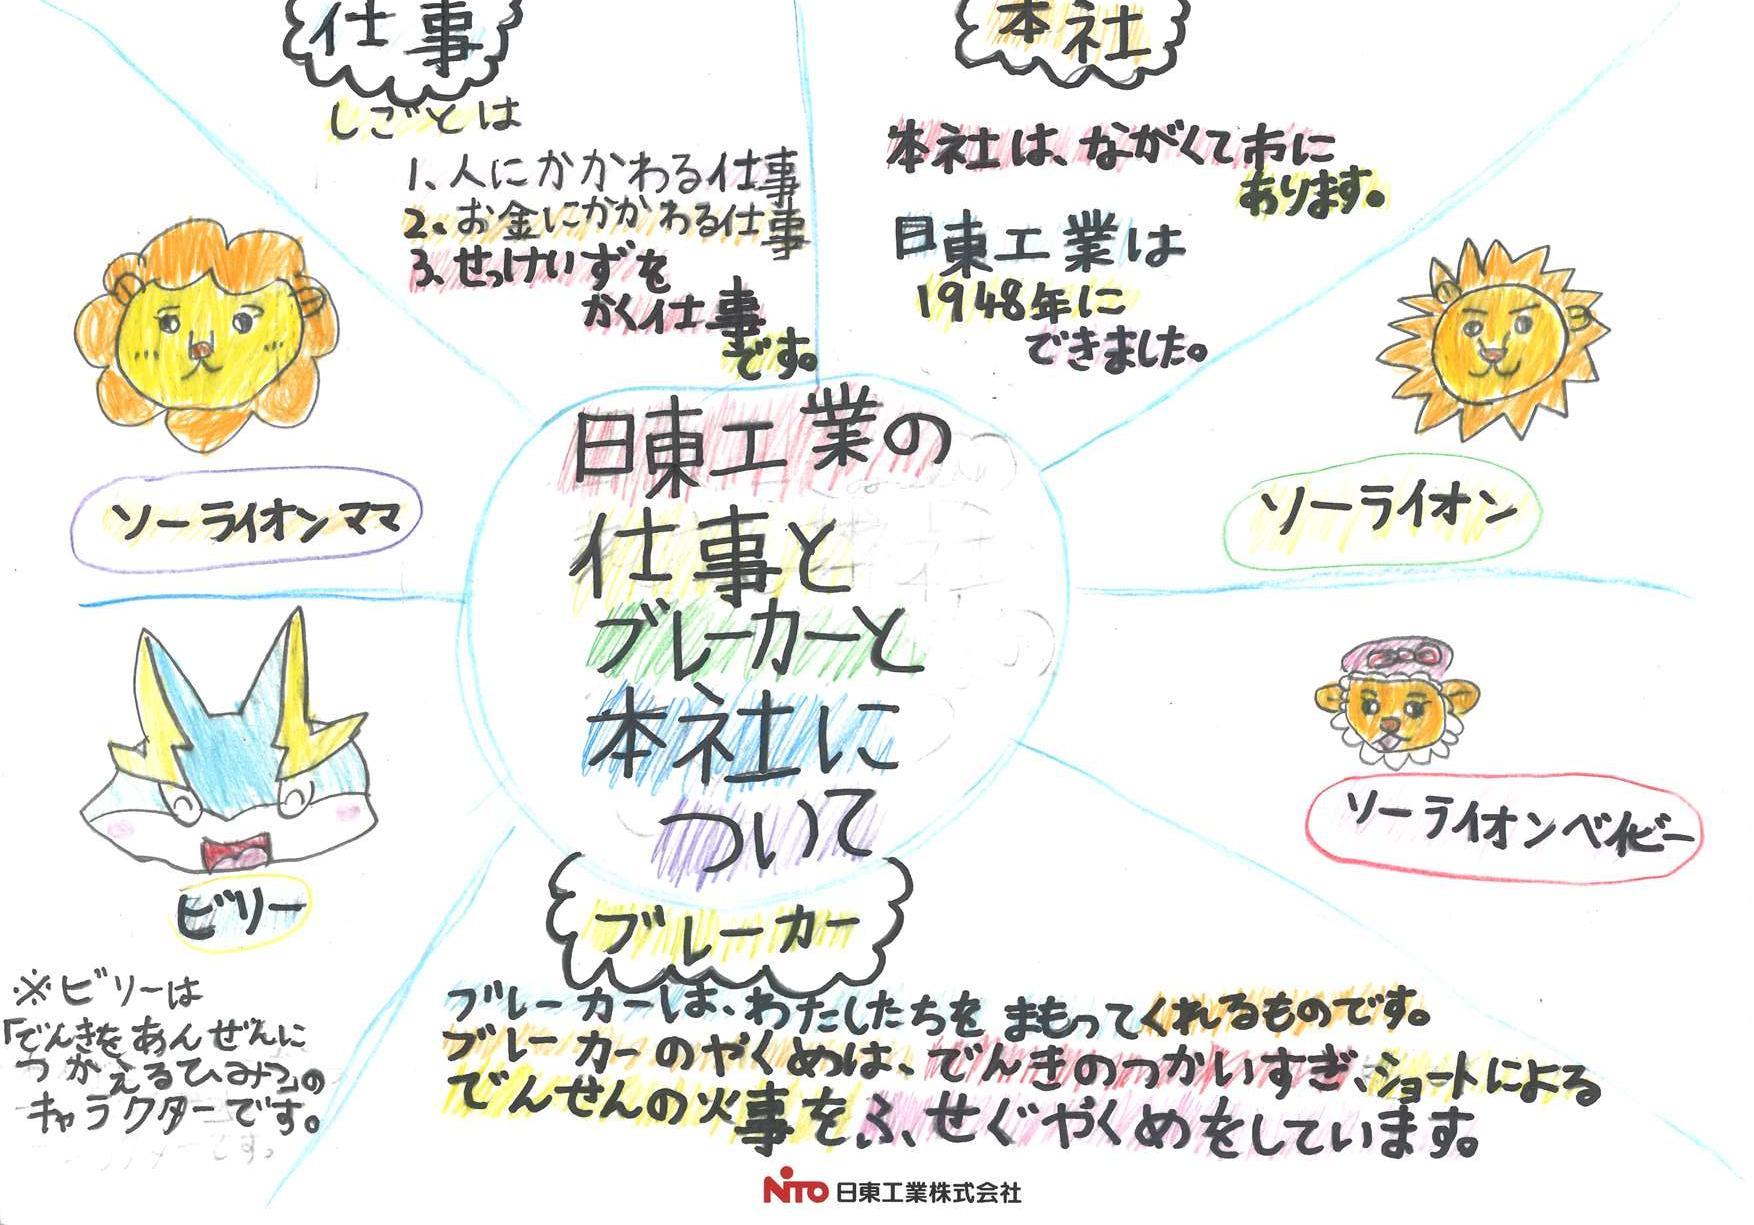 仕事
しごとは
1、人にかかわる仕事
2、お金にかかわる仕事
3、せっけいずを
かく仕事
です。
本社
本社は、ながくて市に
あります。
日東工業は
1948年に
できました。
ソーライオンママ
ソーライオン
日東工業の
仕事と
ブレーカーと
本社に
ついて
ビリー
※ビリーは
「でんきをあんぜんに
つかえるひみつ」の
キャラクターです。
ソーライオンベイビー
ブレーカー
ブレーカーは、わたしたちをまもってくれるものです。
ブレーカーのやくめは、でんきのつかいすぎ、ショートによる
でんせんの火事をふせぐやくめをしています。
NITO 日東工業株式会社